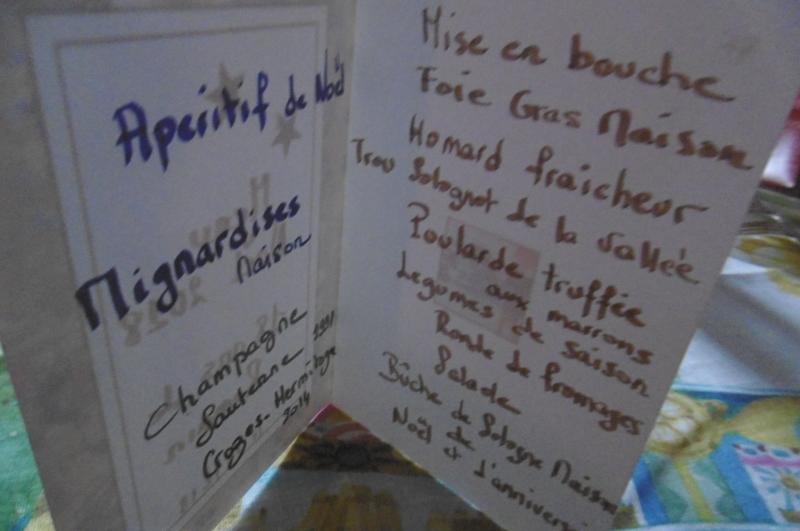 Aperitif de Noël
Mignardises
Maison
Champagne
Sauterne 1991
Crozes-Hermitage
2014
Mise en bouche
Foie Gras Maison
Homard fraîcheur
Trou Solognot de la Vallée
Poularde truffée
aux marrons
Legumes de saison
Ronde de fromages
Salade
Bûche de Sologne Maison
de
Noël et d'anniver